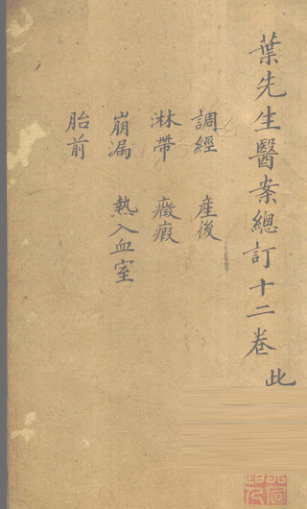 葉先生醫案總訂十二卷 此
調經 產後
淋帶 癥瘕
崩漏 熱入血室
胎前